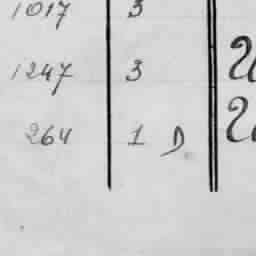 1017 3
1247 3
264 1 D